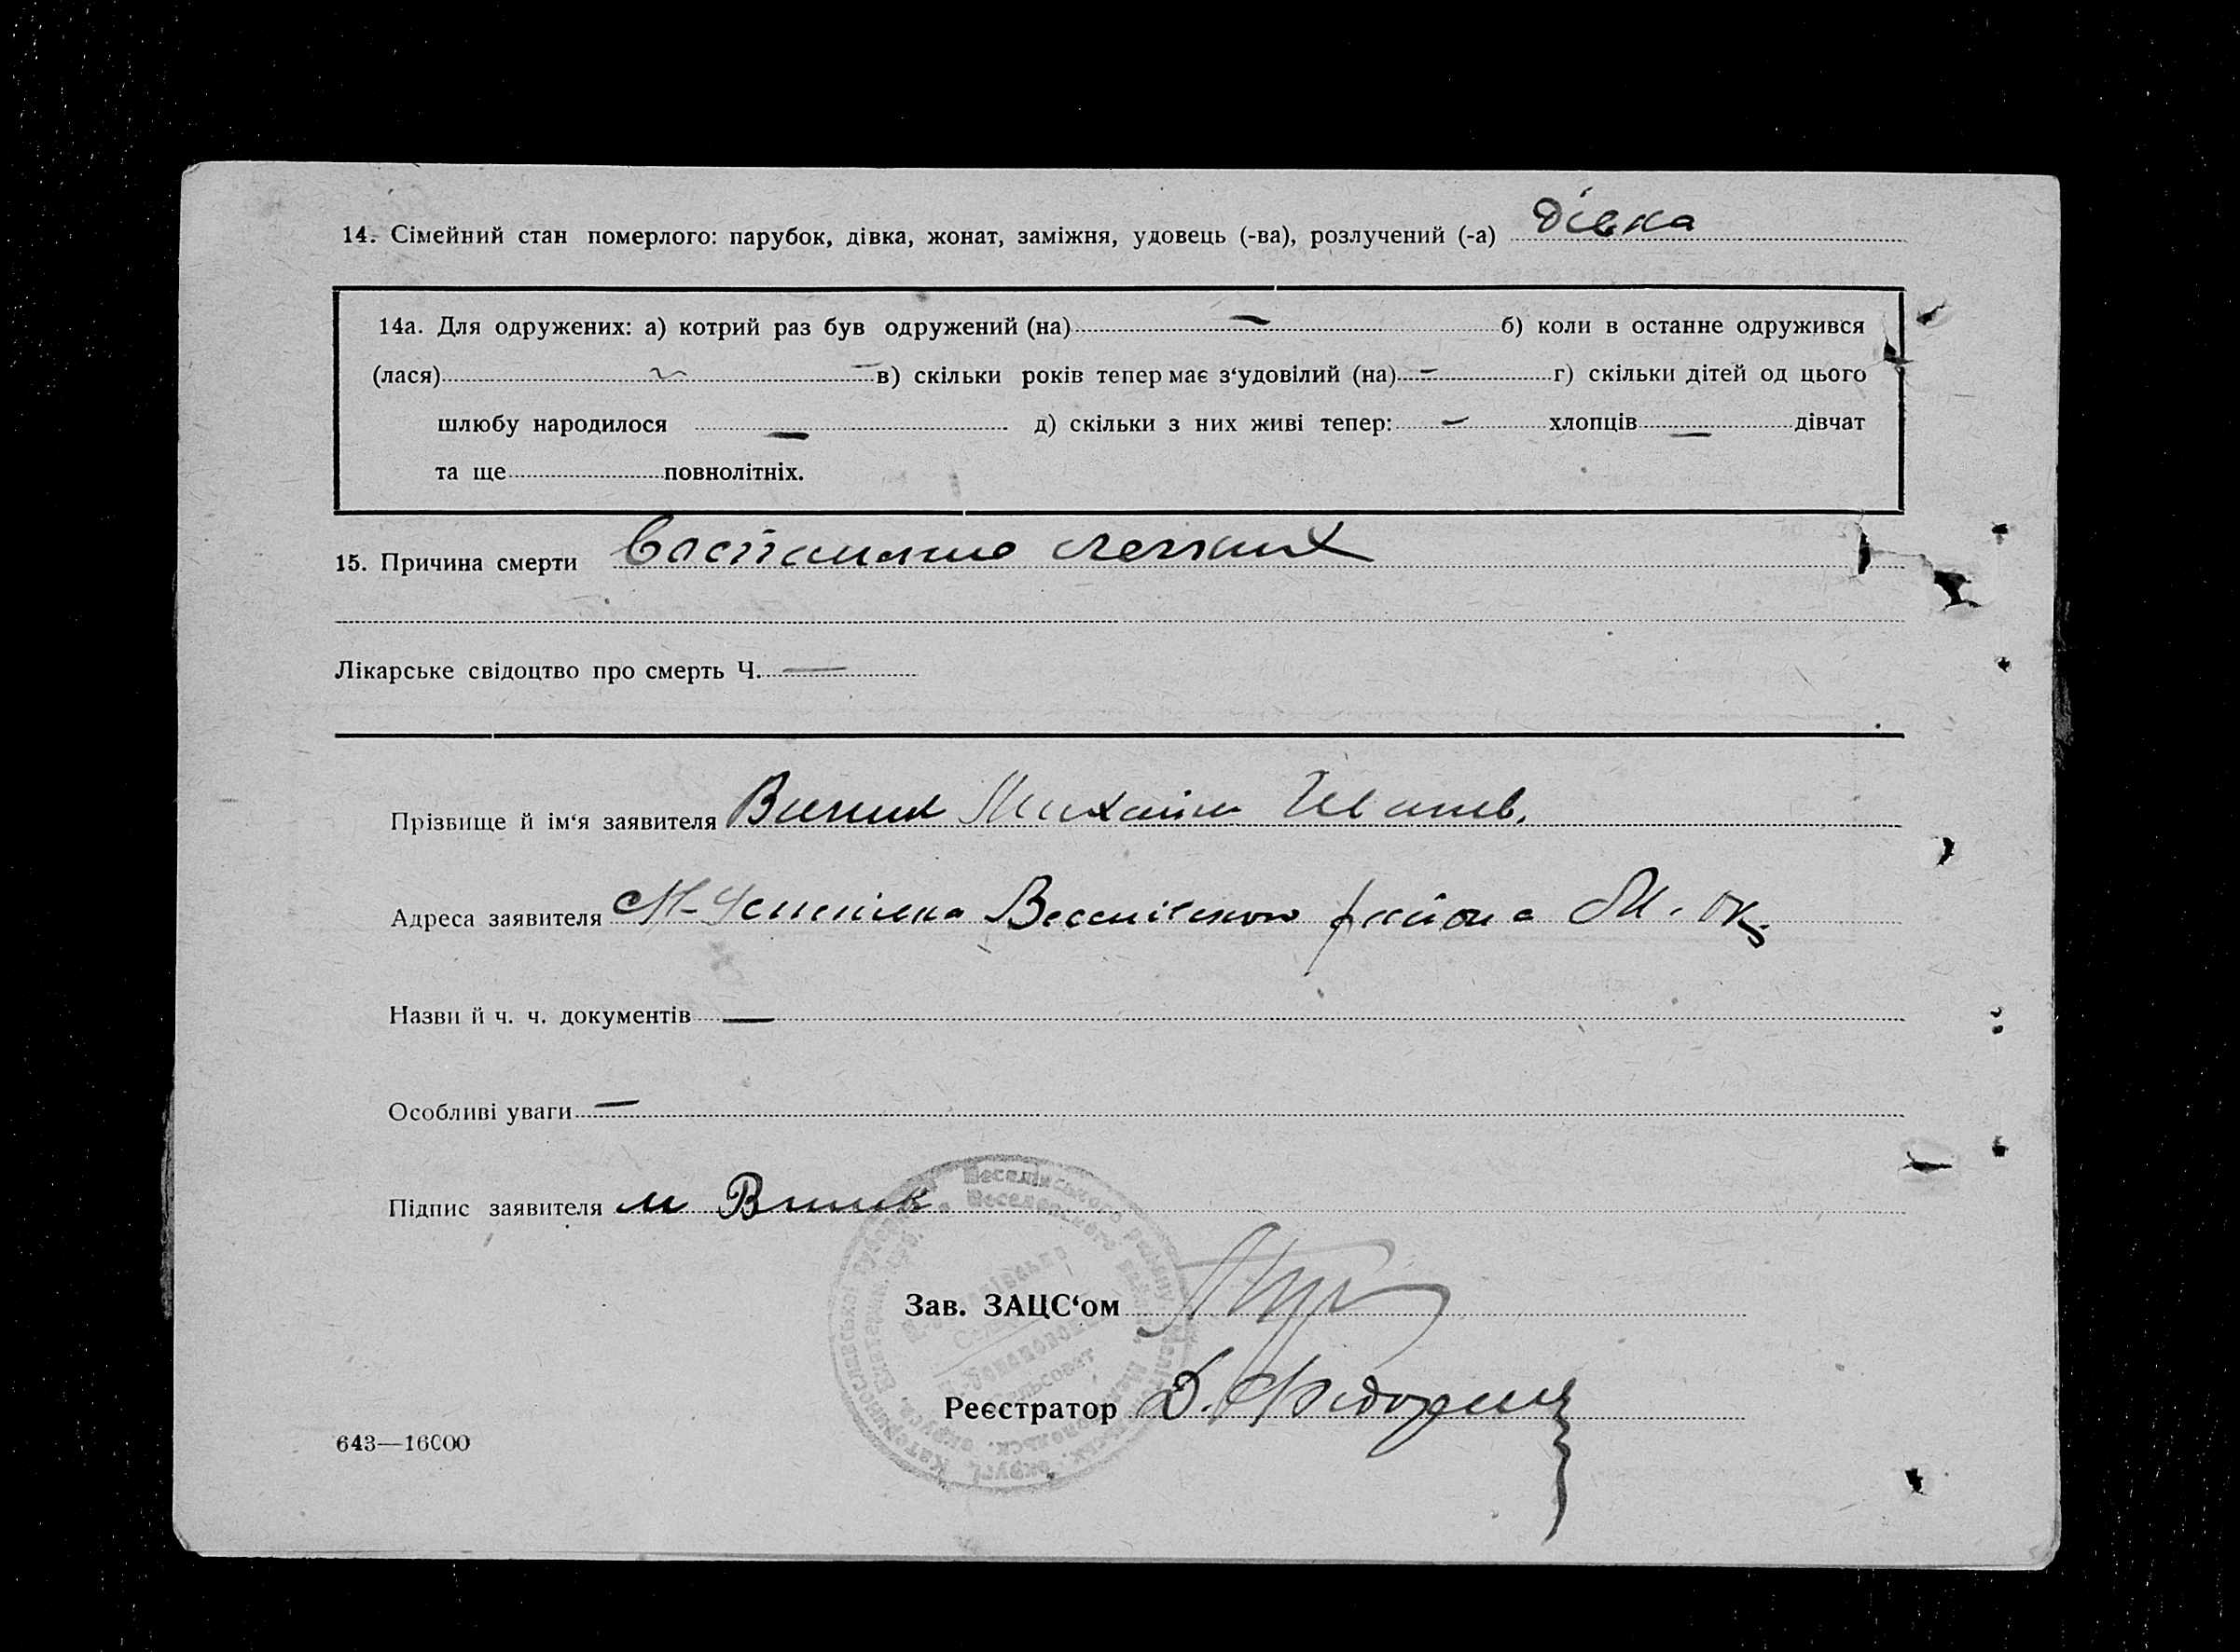 14. Сімейний стан померлого: парубок, дівка, жонат, заміжня, удовець (-ва), розлучений (-а) дівка
14а. Для одружених: а) котрий раз був одружений (на) — б) коли в останне одружився
(лася) — в) скільки років тепер має з‘удовілий (на) — г) скільки дітей од цього
шлюбу народилося — д) скільки з них живі тепер: — хлопців — дівчат
та ще повнолітніх.
15. Причина смерти Воспаление легких
Лікарське свідоцтво про смерть Ч. —
Прізвище й ім‘я заявителя Виник Михайло Иванов.
Адреса заявителя Веселівского района М. ок.
Назви й ч. ч. документів —
Особливі уваги —
Підпис заявителя М Виник
Зав. ЗАЦС‘ом
Реєстратор Д.
643—16000